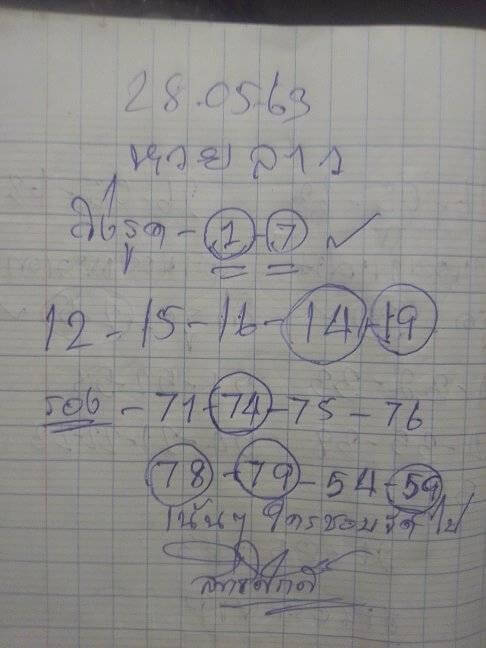 28.05.63
หวยลาว
สิ่งรูด - 1 - 7 ✓
12 - 15 - 16 - 14 - 19
รอง - 71 - 74 - 75 - 76
78 - 79 - 54 - 59
เน้นๆ ใครชอบจัดไป